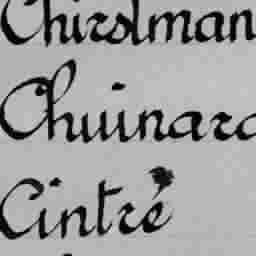 Chirslman
Chuinard
Cintré